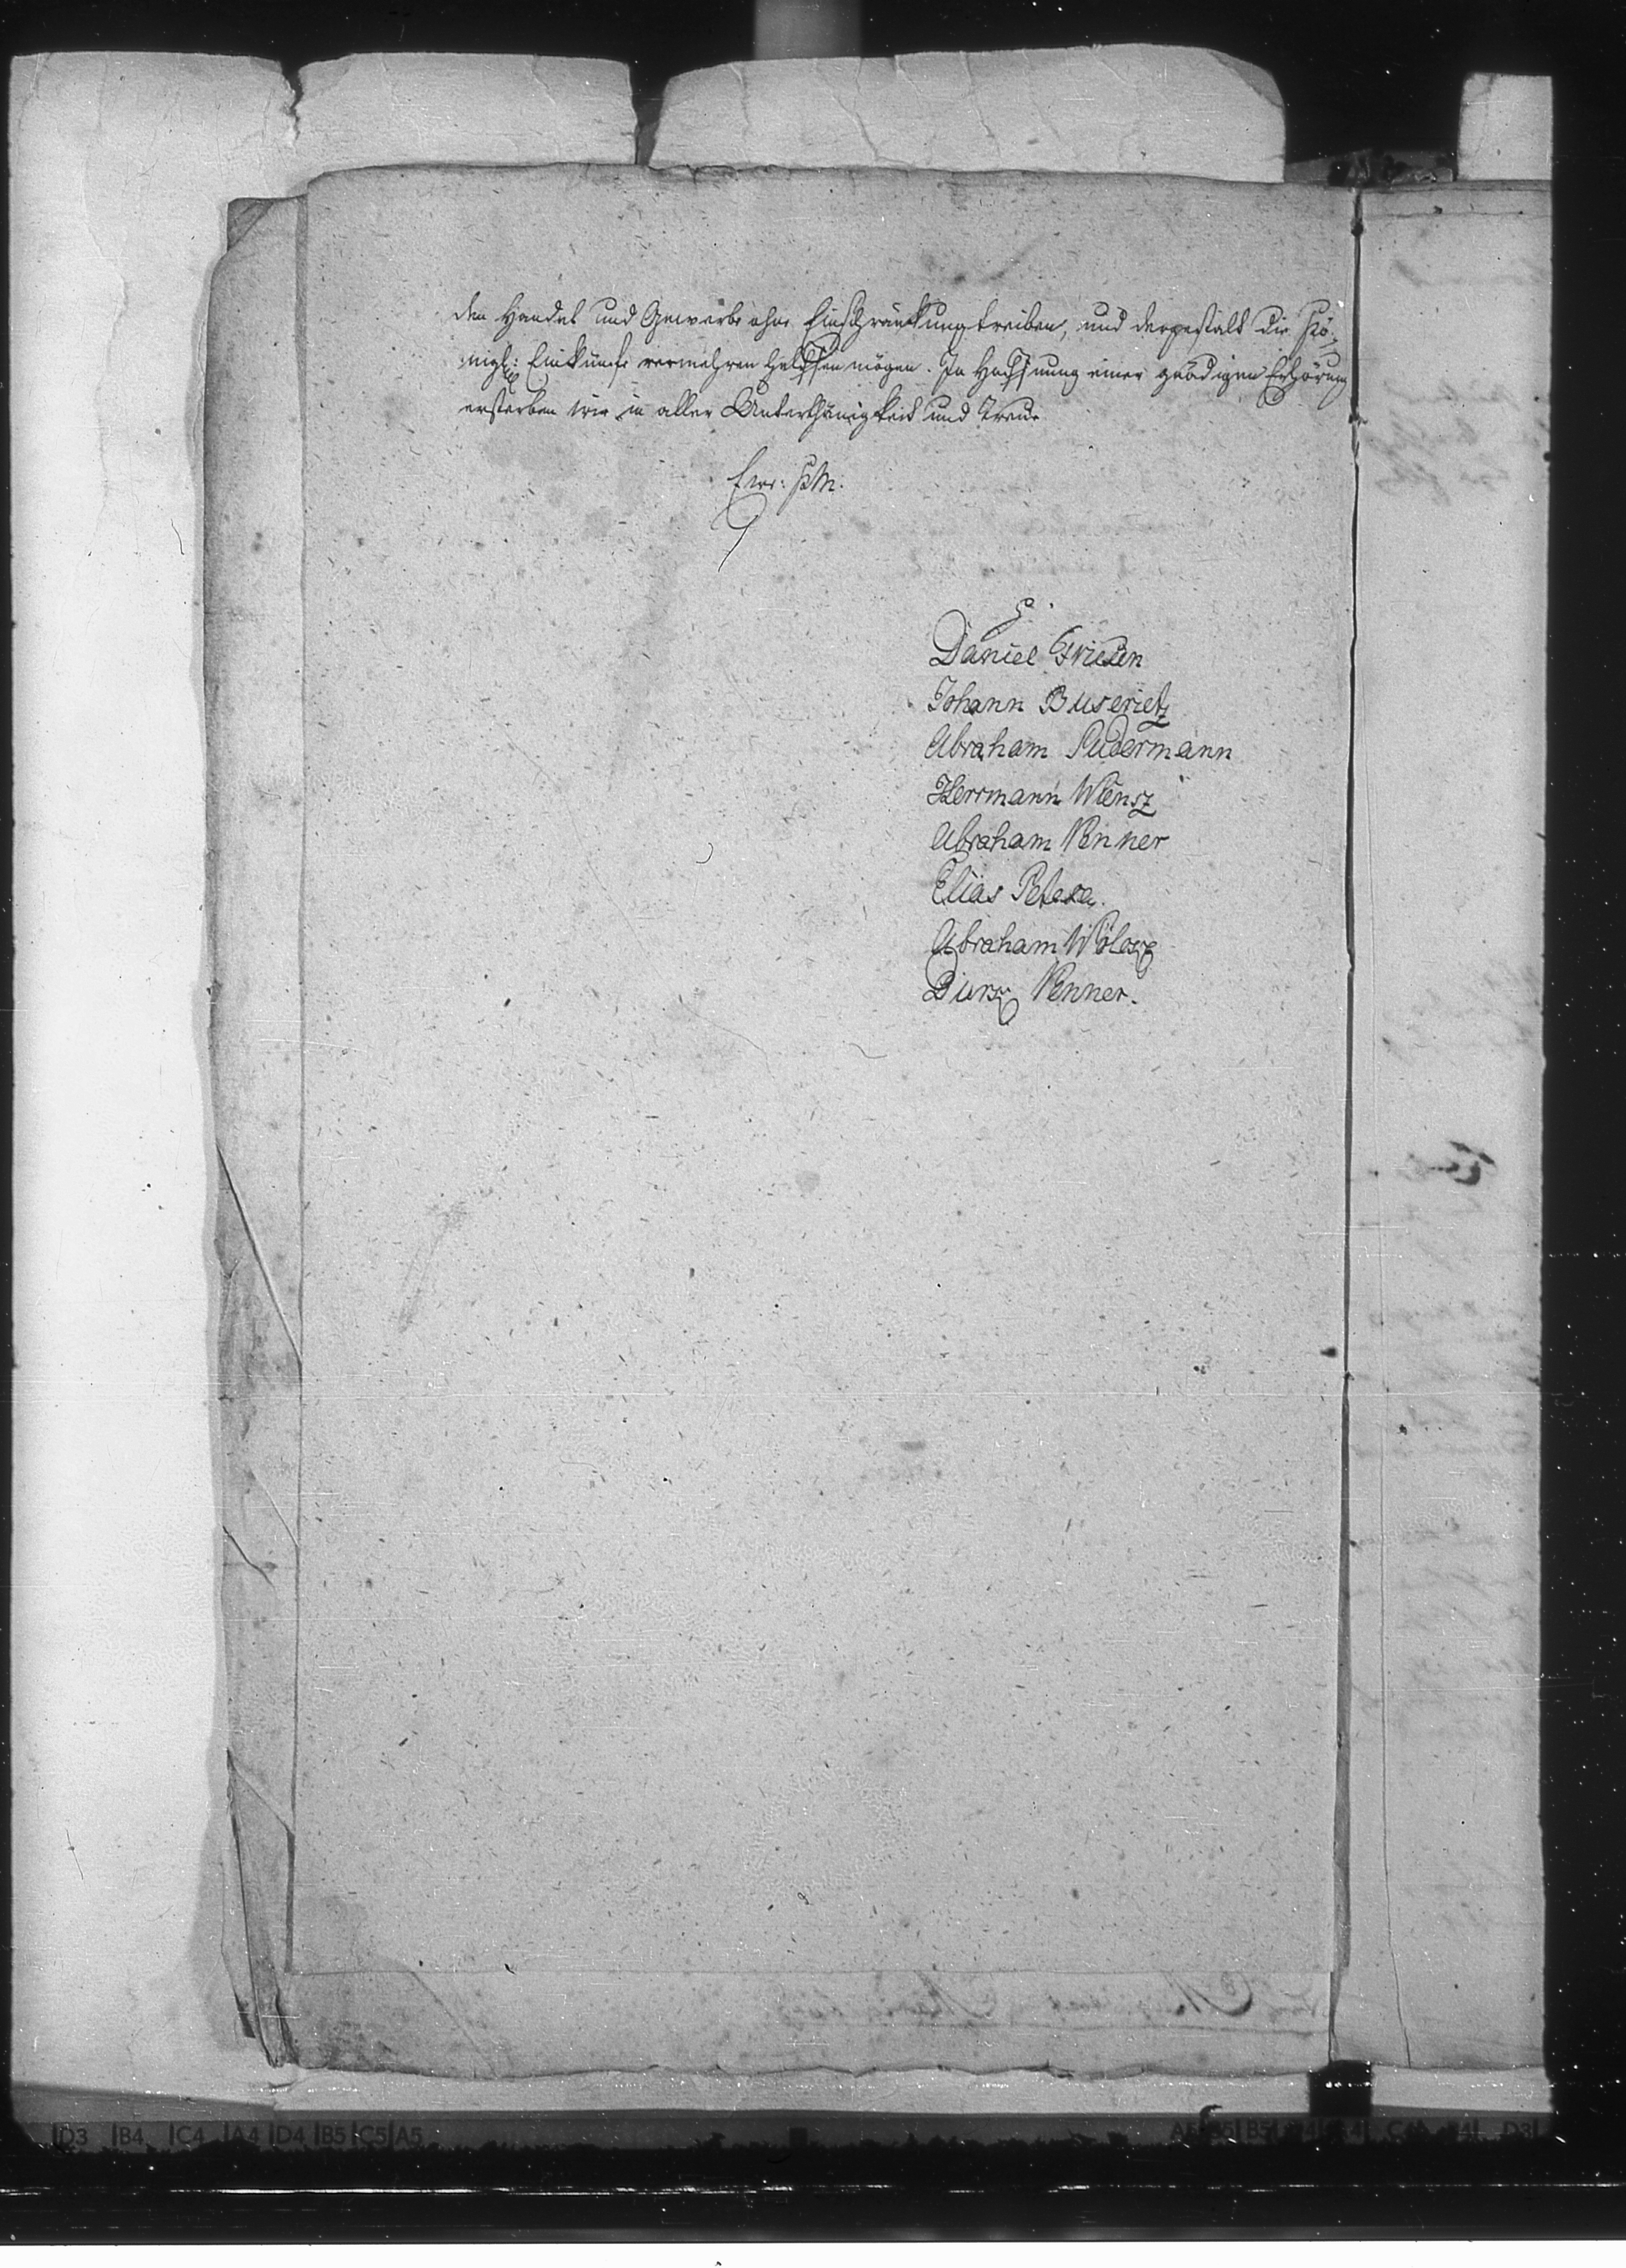 den Handel und Gewerbe ohne Einschränkung treiben, und dergestalt die Kö-
nigl: Einkünfte vermehren helffen mögen. In Hoffnung einer gnädigen Erhörung
ersterben wir in aller Unterthänigkeit und Treue
Ew: K M:
Daniel Friesen
Johann
Abraham Sudermann
Herrmann Wiensz
Abraham Penner
Elias Peters.
Abraham Wölcke
Dirck Penner.
D3 B4 C4 A4 D4 B5 C5 A5